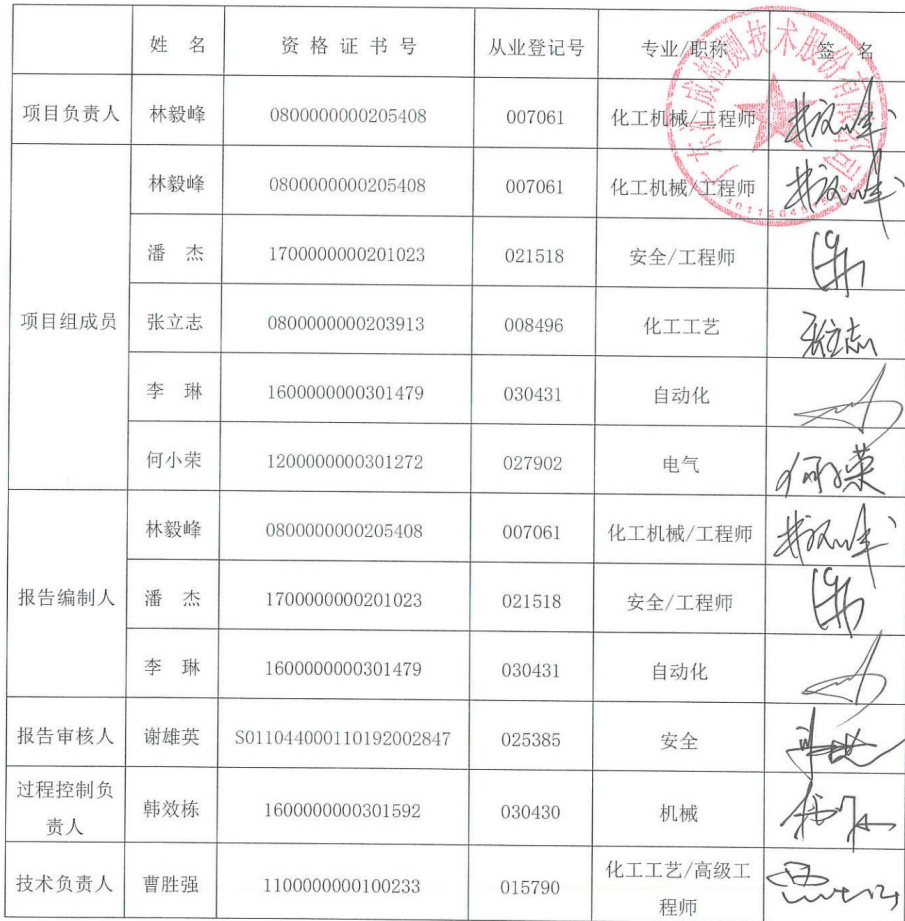 姓 名 资格证书号 从业登记号 专业/职称 签 名
项目负责人 林毅峰 0800000000205408 007061 化工机械/工程师
项目组成员 林毅峰 0800000000205408 007061 化工机械/工程师
潘 杰 1700000000201023 021518 安全/工程师
张立志 0800000000203913 008496 化工工艺 张立志
李 琳 1600000000301479 030431 自动化
何小荣 1200000000301272 027902 电气 何小荣
报告编制人 林毅峰 0800000000205408 007061 化工机械/工程师
潘 杰 1700000000201023 021518 安全/工程师
李 琳 1600000000301479 030431 自动化
报告审核人 谢雄英 S011044000110192002847 025385 安全
过程控制负
责人 韩效栋 1600000000301592 030430 机械
技术负责人 曹胜强 1100000000100233 015790 化工工艺/高级工
程师